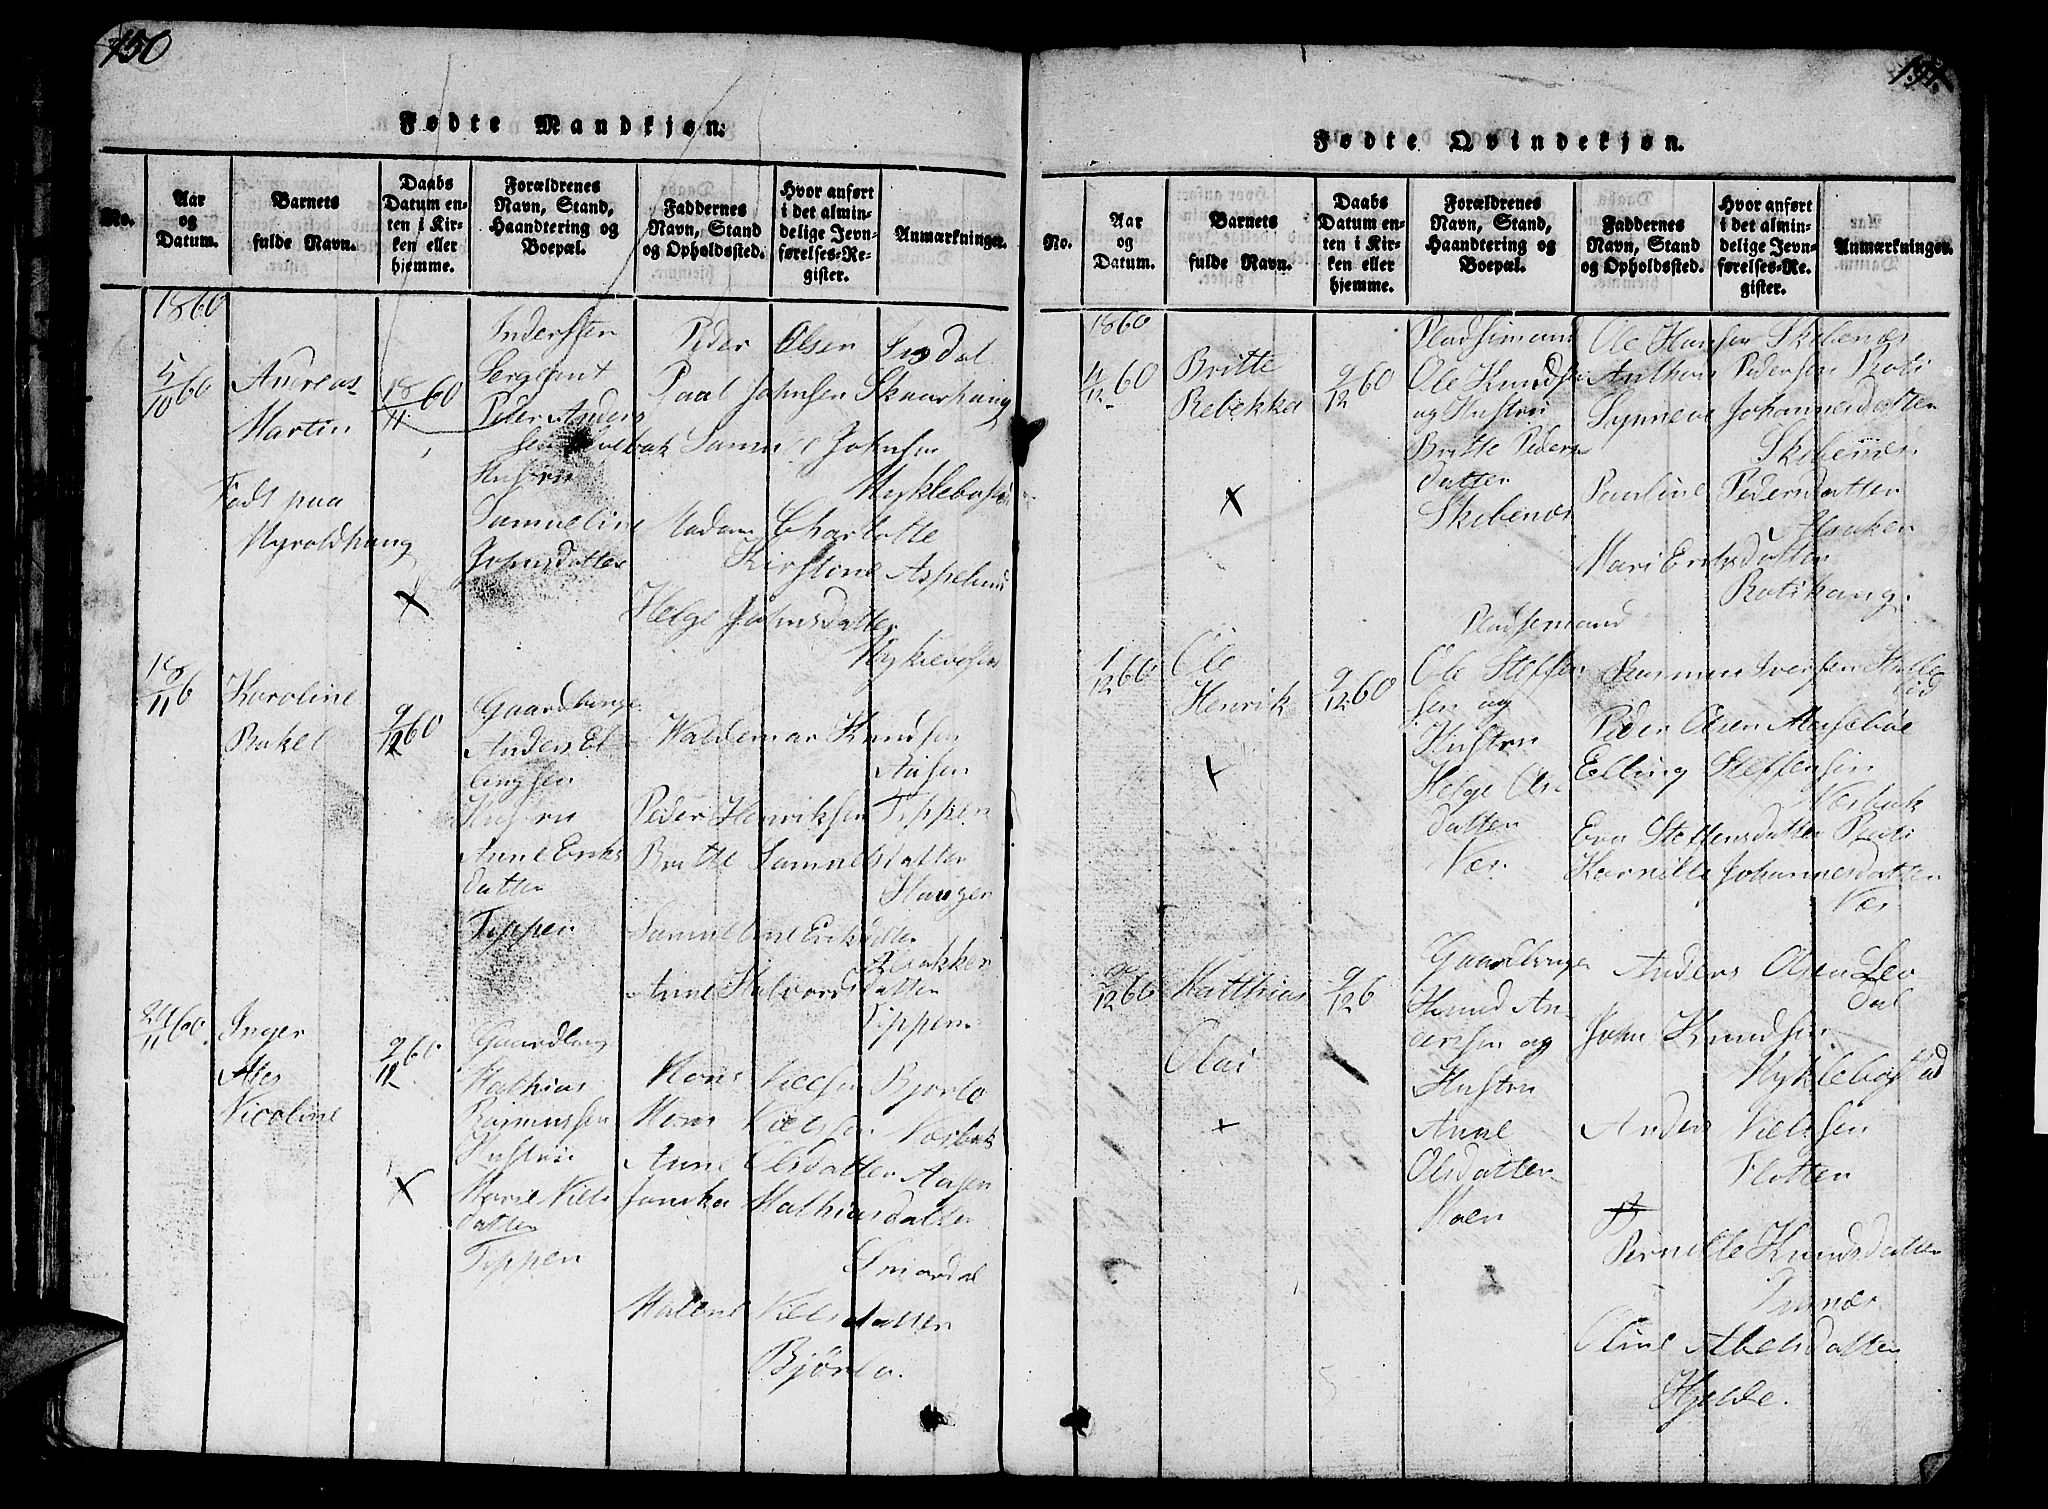 150
Fødte Mandkjøn.
No.
Aar og Datum.
Barnets fulde Navn.
Daabs Datum enten i Kirken eller hjemme.
Forældrenes Navn, Stand, Haandtering og Boepæl.
Faddernes Navn, Stand og Opholdssted.
Hvor anført i det almindelige Jevnførelses-Register.
Anmærkninger.
1860
5/10 60
Andreas
Martin
Født paa
18/11 60
Sergeant
Peder Anders
Hustru
Samueline
Johnsdatter
Peder Olsen
Paal Johnsen Skaarhaug
Samuel Johnsen
Myklebost
Madam Charlotte
Kirstine Aspelund
Helge Johnsdatter
18/11 6
Karoline
Rakel
9/12 60
Gaardbruge
Anders El
lingsen
Hustru
Anne Eriks
datter
Tippen
Waldemar Knudsen
Aasen
Peder Henriksen Tippen
Britte Samuelsdatter
Hauger
Samueline Eriksdatter
Anne Halvordsdatter
Tippen
24/11 60.
Inger
Ales
Nicoline
9/12 60
Gaardbrug
Mathias
Rasmussen
Hustru
Marie Niels
datter
Tippen
Hans Nielsen Bjørlo
Mons Nielssen Nosbak
Anne Olsdatter Aasen
Janika Mathiasdatter
Smørdal
Malene Nielsdatter
Bjørlo.
151.
Fødte Qvindekjøn.
No.
Aar og Datum.
Barnets fulde Navn.
Daabs Datum enten i Kirken eller hjemme.
Forældrenes Navn, Stand, Haandtering og Boepæl.
Faddernes Navn, Stand og Opholdssted.
Hvor anført i det almindelige Jevnførelses-Register.
Anmærkninger.
1860
4/12 60
Britte
Rebekka
9/12 60
Pladsemand
Ole Knudsen
og Hustru
Britte Peders
datter
Skebenæs
Ole Hansen Skebenæs
Anthon Pedersen Roti
Synneve Johannesdatter
Skebenæs
Pauline Pedersdatter
Mari Eriksdatter
Rotihaug.
1/12 60
Ole
Henrik
9/12 60
Pladsemand
Ole Steffen
sen og
Hustru
Helge Ols
datter
Næs
Rasmus Iversen
Peder Olsen
Elling Steffensen
Næsbak
Eva Steffensdatter Roti
Kornille Johannesdatter
Næs
9/12 66
Matthias
Olai
9/12 6
Gaardbruger
Knud An
dersen og
Hustru
Anne
Olsdatter
Moen
Anders Olsen Lev
dal
John Knudsen
Myklebostad
Anders Nielssen
Flotten
Pernille Knudsdatter
Oline Abelsdatter
Hjelde.